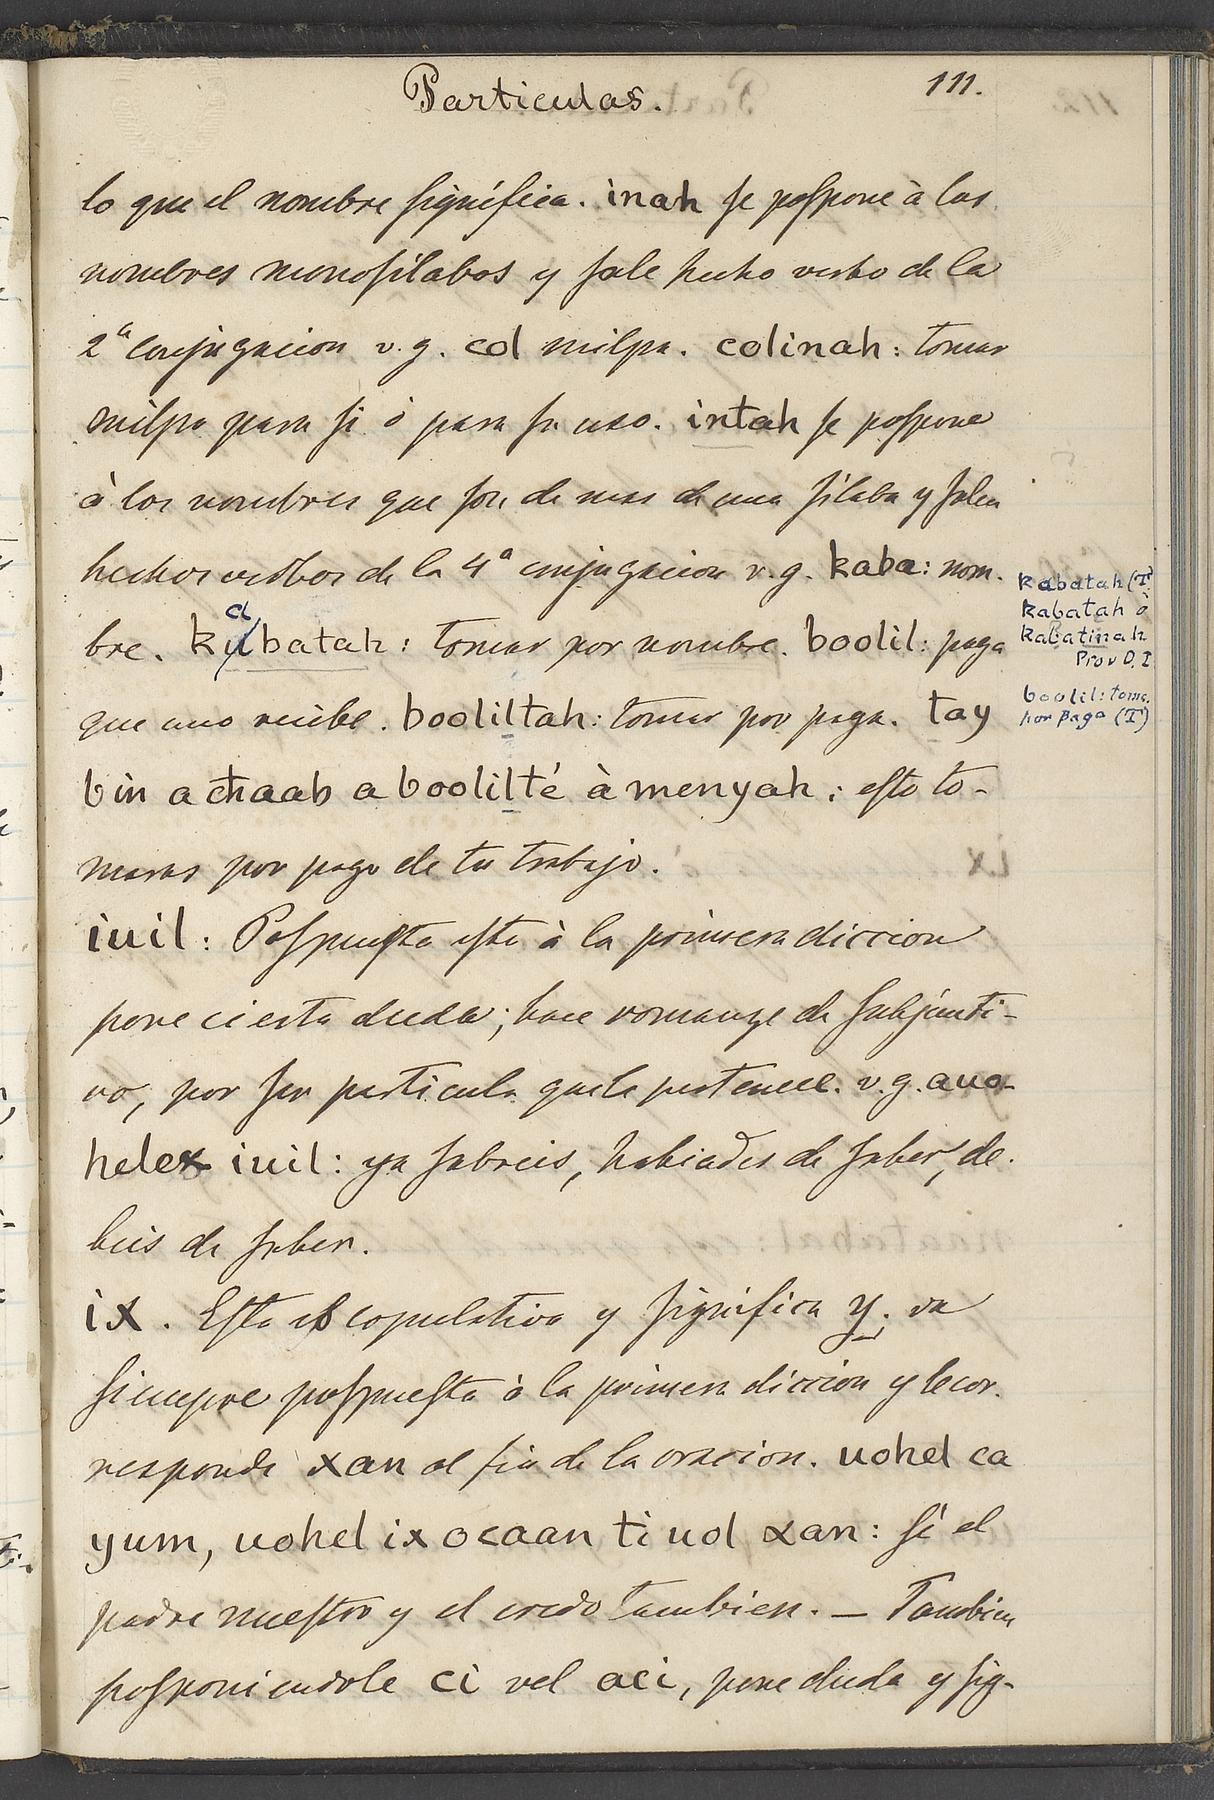 Particulas. 111.
lo que el nombre significa. inah se pospone à los
nombres monosilabos y sale hecho verbo de la
2ª conjugacion v.g. col milpa. colinah: tomar
milpa para si ó para su uso. intah se pospone
à los nombres que son de mas de una silaba y salen
hechos verbos de la 4ª conjugacion v.g. kaba: nom-
bre. kabatah: tomar por nombre. boolil: paga
que uno recibe. booliltah: tomar por paga. tay
bin a chaab a boolilté à menyah: esto to-
maras por pago de tu trabajo.
iuil: Pospuesta esta à la primera diccion
pone cierta duda; hace romanze de subjunti-
vo, por ser particula que le pertenece. v.g. auo-
helex iuil: ya sabreis, habiades de saber, de-
beis de saber.
ix. Esta es copulativa y significa y. va
siempre pospuesta à la primera diccion y le cor-
responde xan al fin de la oracion. uohel ca
yum, uohel ix ocaan ti uol xan: sé el
padre nuestro y el credo tambien. — Tambien
posponiendole ci vel aci, pone duda y sig-
kabatah (T)
kabatah ò
kabatinah
Prov D. I
boolil: toma.
por paga (T)